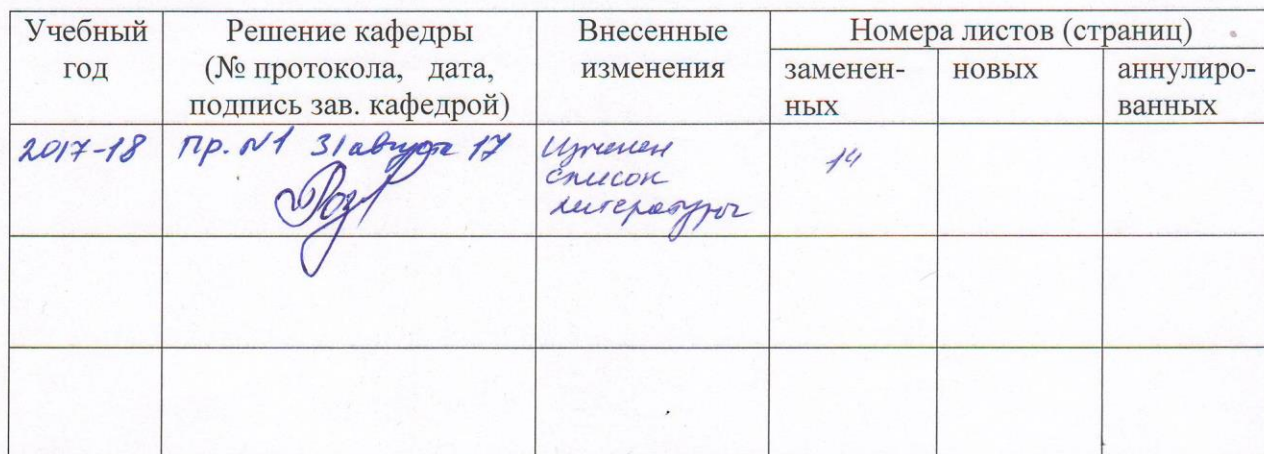 Учебный год
Решение кафедры
(№ протокола, дата,
подпись зав. кафедрой)
Внесенные
изменения
Номера листов (страниц)
заменен-
ных
новых
аннулиро-
ванных
2017-18
пр. №1 31 августа 17
Изменен
список
литературы
14